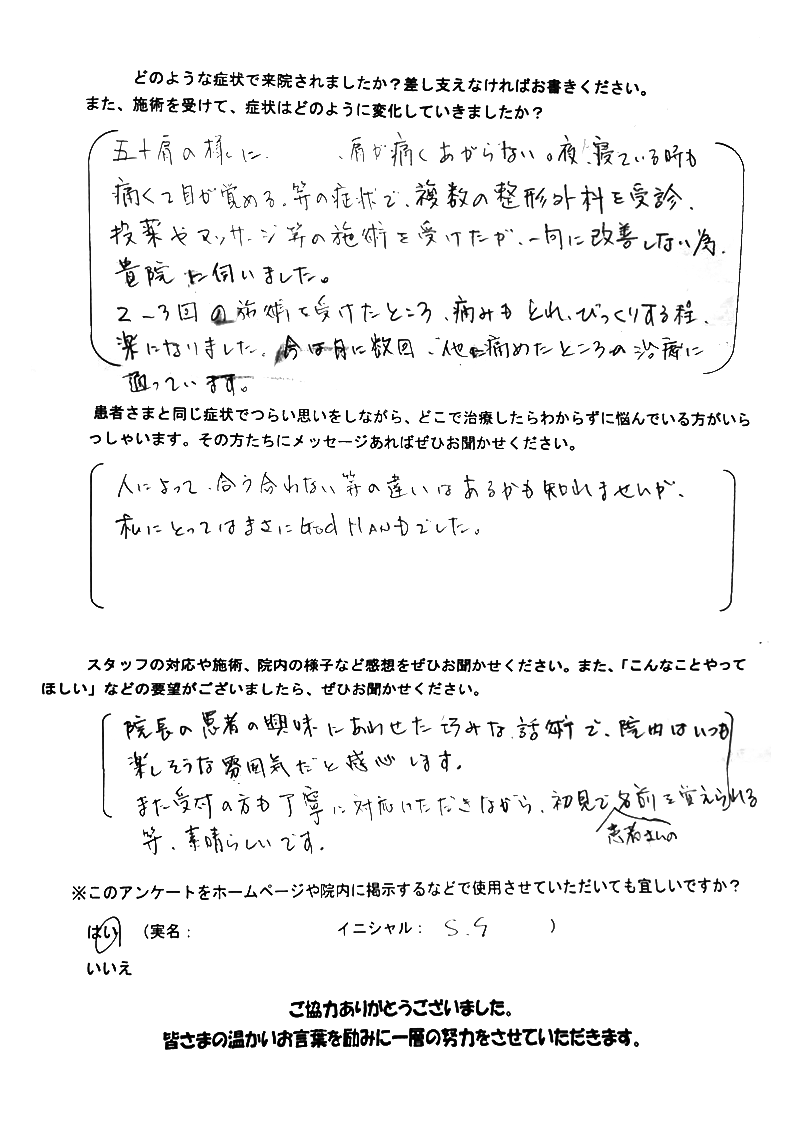 どのような症状で来院されましたか？差し支えなければお書きください。
また、施術を受けて、症状はどのように変化していきましたか？
五十肩の様に、肩が痛くあがらない。夜、寝ている時も
痛くて目が覚める、等の症状で、複数の整形外科を受診、
投薬やマッサージ等の施術を受けたが、一向に改善しない為、
貴院に伺いました。
2～3回の施術を受けたところ、痛みもとれ、びっくりする程、
楽になりました。今は月に数回、他に痛めたところの治療に
通っています。
患者さまと同じ症状でつらい思いをしながら、どこで治療したらわからずに悩んでいる方がいら
っしゃいます。その方たちにメッセージあればぜひお聞かせください。
人によって、合う合わない等の違いはあるかも知れませんが、
私にとってはまさにGod HANDでした。
スタッフの対応や施術、院内の様子など感想をぜひお聞かせください。また、「こんなことやって
ほしい」などの要望がございましたら、ぜひお聞かせください。
院長の患者の興味にあわせた巧みな話術で、院内はいつも
楽しそうな雰囲気だと感心します。
また受付の方も丁寧に対応いただきながら、初見で名前を覚えられる
患者さんの
等、素晴らしいです。
※このアンケートをホームページや院内に掲示するなどで使用させていただいても宜しいですか？
はい （実名： イニシャル： S.G ）
いいえ
ご協力ありがとうございました。
皆さまの温かいお言葉を励みに一層の努力をさせていただきます。